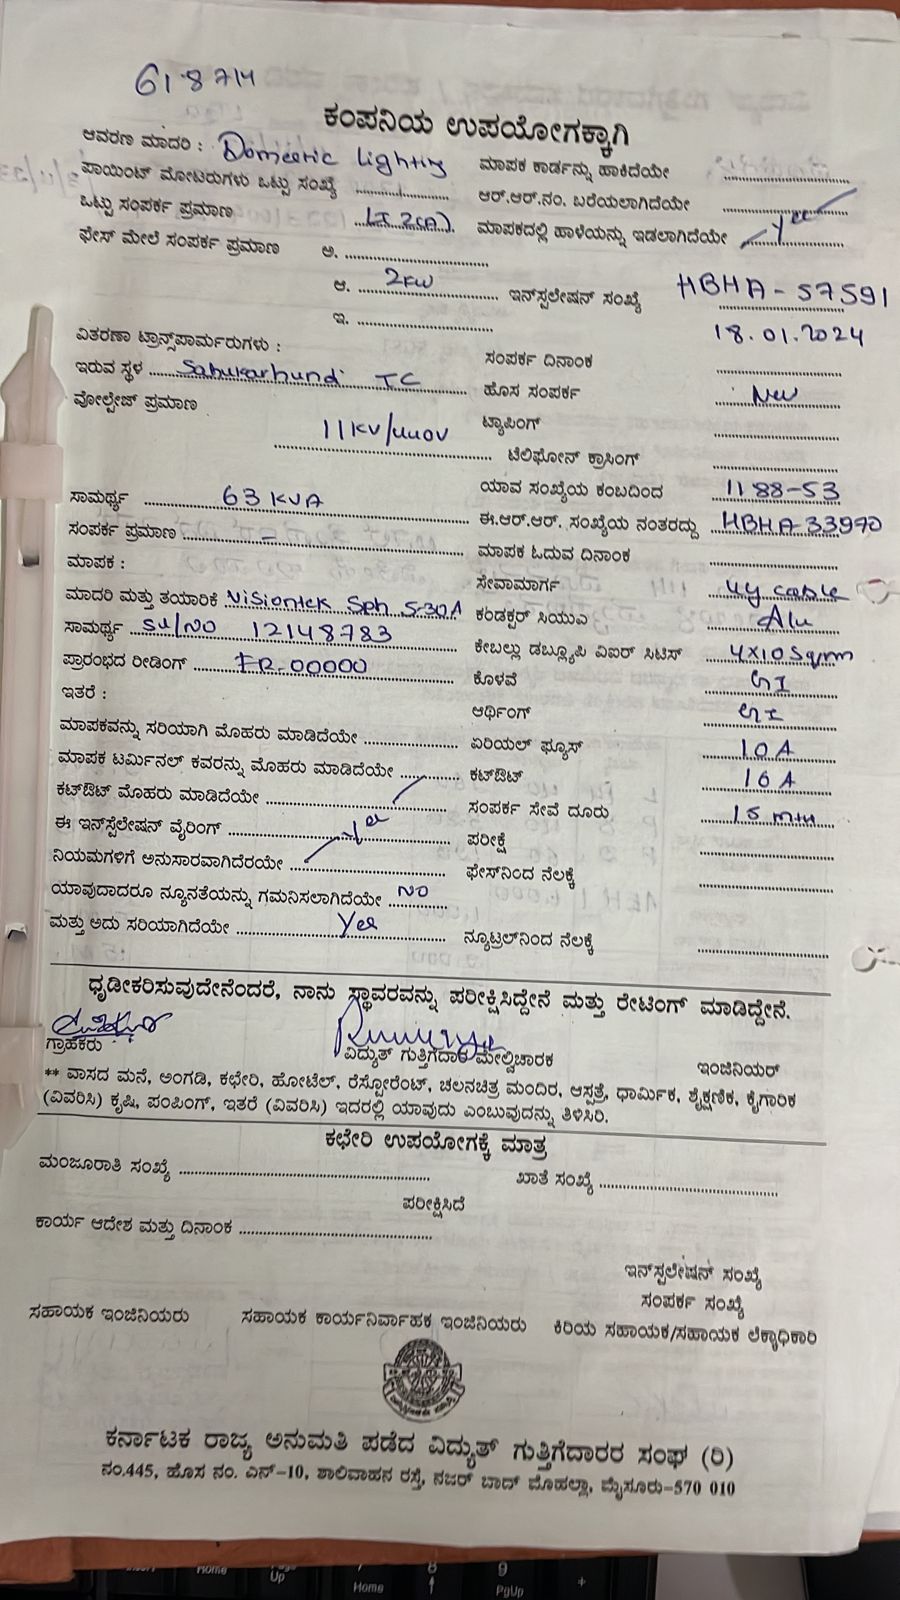 618714
ಕಂಪನಿಯ ಉಪಯೋಗಕ್ಕಾಗಿ
ಆವರಣ ಮಾದರಿ : Domestic Lighting
ಪಾಯಿಂಟ್ ಮೋಟರುಗಳು ಒಟ್ಟು ಸಂಖ್ಯೆ
ಒಟ್ಟು ಸಂಪರ್ಕ ಪ್ರಮಾಣ LT 2(A).
ಫೇಸ್ ಮೇಲೆ ಸಂಪರ್ಕ ಪ್ರಮಾಣ ಅ.
ಆ. 2KW
ಇ.
ವಿತರಣಾ ಟ್ರಾನ್ಸ್‌ಪಾರ್ಮರುಗಳು :
ಇರುವ ಸ್ಥಳ Sahukarhundi TC
ವೋಲ್ಟೇಜ್ ಪ್ರಮಾಣ
11KV/440V
ಸಾಮರ್ಥ್ಯ 63 KVA
ಸಂಪರ್ಕ ಪ್ರಮಾಣ -
ಮಾಪಕ :
ಮಾದರಿ ಮತ್ತು ತಯಾರಿಕೆ Visiontek Sph 5-30A
ಸಾಮರ್ಥ್ಯ Sl/NO 12148783
ಪ್ರಾರಂಭದ ರೀಡಿಂಗ್ FR-00000
ಇತರೆ :
ಮಾಪಕವನ್ನು ಸರಿಯಾಗಿ ಮೊಹರು ಮಾಡಿದೆಯೇ
ಮಾಪಕ ಟರ್ಮಿನಲ್ ಕವರನ್ನು ಮೊಹರು ಮಾಡಿದೆಯೇ
ಕಟ್‌ಔಟ್ ಮೊಹರು ಮಾಡಿದೆಯೇ
ಈ ಇನ್‌ಸ್ಪಲೇಷನ್ ವೈರಿಂಗ್ Yes
ನಿಯಮಗಳಿಗೆ ಅನುಸಾರವಾಗಿದೆರಯೇ
ಯಾವುದಾದರೂ ನ್ಯೂನತೆಯನ್ನು ಗಮನಿಸಲಾಗಿದೆಯೇ NO
ಮತ್ತು ಅದು ಸರಿಯಾಗಿದೆಯೇ Yes
ಮಾಪಕ ಕಾರ್ಡನ್ನು ಹಾಕಿದೆಯೇ
ಆರ್.ಆರ್.ನಂ. ಬರೆಯಲಾಗಿದೆಯೇ
ಮಾಪಕದಲ್ಲಿ ಹಾಳೆಯನ್ನು ಇಡಲಾಗಿದೆಯೇ Yes
ಇನ್‌ಸ್ಪಲೇಷನ್ ಸಂಖ್ಯೆ HBHA-57591
18.01.2024
ಸಂಪರ್ಕ ದಿನಾಂಕ
ಹೊಸ ಸಂಪರ್ಕ New
ಟ್ಯಾಪಿಂಗ್
ಟೆಲಿಫೋನ್ ಕ್ರಾಸಿಂಗ್
ಯಾವ ಸಂಖ್ಯೆಯ ಕಂಬದಿಂದ 1188-53
ಈ.ಆರ್.ಆರ್. ಸಂಖ್ಯೆಯ ನಂತರದ್ದು HBHA-33970
ಮಾಪಕ ಓದುವ ದಿನಾಂಕ
ಸೇವಾಮಾರ್ಗ Ug cable
ಕಂಡಕ್ಟರ್ ಸಿಯುವಿ Alu
ಕೇಬಲ್ಲು ಡಬ್ಲ್ಯೂಪಿ ವಿಐರ್ ಸಿಟಿಸ್ 4X10 Sqmm
ಕೊಳವೆ GI
ಆರ್ಥಿಂಗ್ GI
ಏರಿಯಲ್ ಫ್ಯೂಸ್ 10 A
ಕಟ್‌ಔಟ್ 16 A
ಸಂಪರ್ಕ ಸೇವೆ ದೂರು 15 mtr
ಪರೀಕ್ಷೆ
ಫೇಸ್‌ನಿಂದ ನೆಲಕ್ಕೆ
ನ್ಯೂಟ್ರಲ್‌ನಿಂದ ನೆಲಕ್ಕೆ
ಧೃಡೀಕರಿಸುವುದೇನೆಂದರೆ, ನಾನು ಸ್ಥಾವರವನ್ನು ಪರೀಕ್ಷಿಸಿದ್ದೇನೆ ಮತ್ತು ರೇಟಿಂಗ್ ಮಾಡಿದ್ದೇನೆ.
ಗ್ರಾಹಕರು ವಿದ್ಯುತ್ ಗುತ್ತಿಗೆದಾರ ಮೇಲ್ವಿಚಾರಕ ಇಂಜಿನಿಯರ್
** ವಾಸದ ಮನೆ, ಅಂಗಡಿ, ಕಛೇರಿ, ಹೋಟೆಲ್, ರೆಸ್ಟೋರೆಂಟ್, ಚಲನಚಿತ್ರ ಮಂದಿರ, ಆಸ್ಪತ್ರೆ, ಧಾರ್ಮಿಕ, ಶೈಕ್ಷಣಿಕ, ಕೈಗಾರಿಕ
(ವಿವರಿಸಿ) ಕೃಷಿ, ಪಂಪಿಂಗ್, ಇತರೆ (ವಿವರಿಸಿ) ಇದರಲ್ಲಿ ಯಾವುದು ಎಂಬುವುದನ್ನು ತಿಳಿಸಿರಿ.
ಕಛೇರಿ ಉಪಯೋಗಕ್ಕೆ ಮಾತ್ರ
ಮಂಜೂರಾತಿ ಸಂಖ್ಯೆ ಖಾತೆ ಸಂಖ್ಯೆ
ಪರೀಕ್ಷಿಸಿದೆ
ಕಾರ್ಯ ಆದೇಶ ಮತ್ತು ದಿನಾಂಕ
ಇನ್‌ಸ್ಪಲೇಷನ್ ಸಂಖ್ಯೆ
ಸಂಪರ್ಕ ಸಂಖ್ಯೆ
ಸಹಾಯಕ ಇಂಜಿನಿಯರು ಸಹಾಯಕ ಕಾರ್ಯನಿರ್ವಾಹಕ ಇಂಜಿನಿಯರು ಕಿರಿಯ ಸಹಾಯಕ/ಸಹಾಯಕ ಲೆಕ್ಕಾಧಿಕಾರಿ
ಕರ್ನಾಟಕ ರಾಜ್ಯ ಅನುಮತಿ ಪಡೆದ ವಿದ್ಯುತ್ ಗುತ್ತಿಗೆದಾರರ ಸಂಘ (ರಿ)
ನಂ.445, ಹೊಸ ನಂ. ಎನ್-10, ಶಾಲಿವಾಹನ ರಸ್ತೆ, ನಜರ್ ಬಾದ್ ಮೊಹಲ್ಲಾ, ಮೈಸೂರು-570 010
Home
Pg
Up
7
Home
8
9
PgUp
+